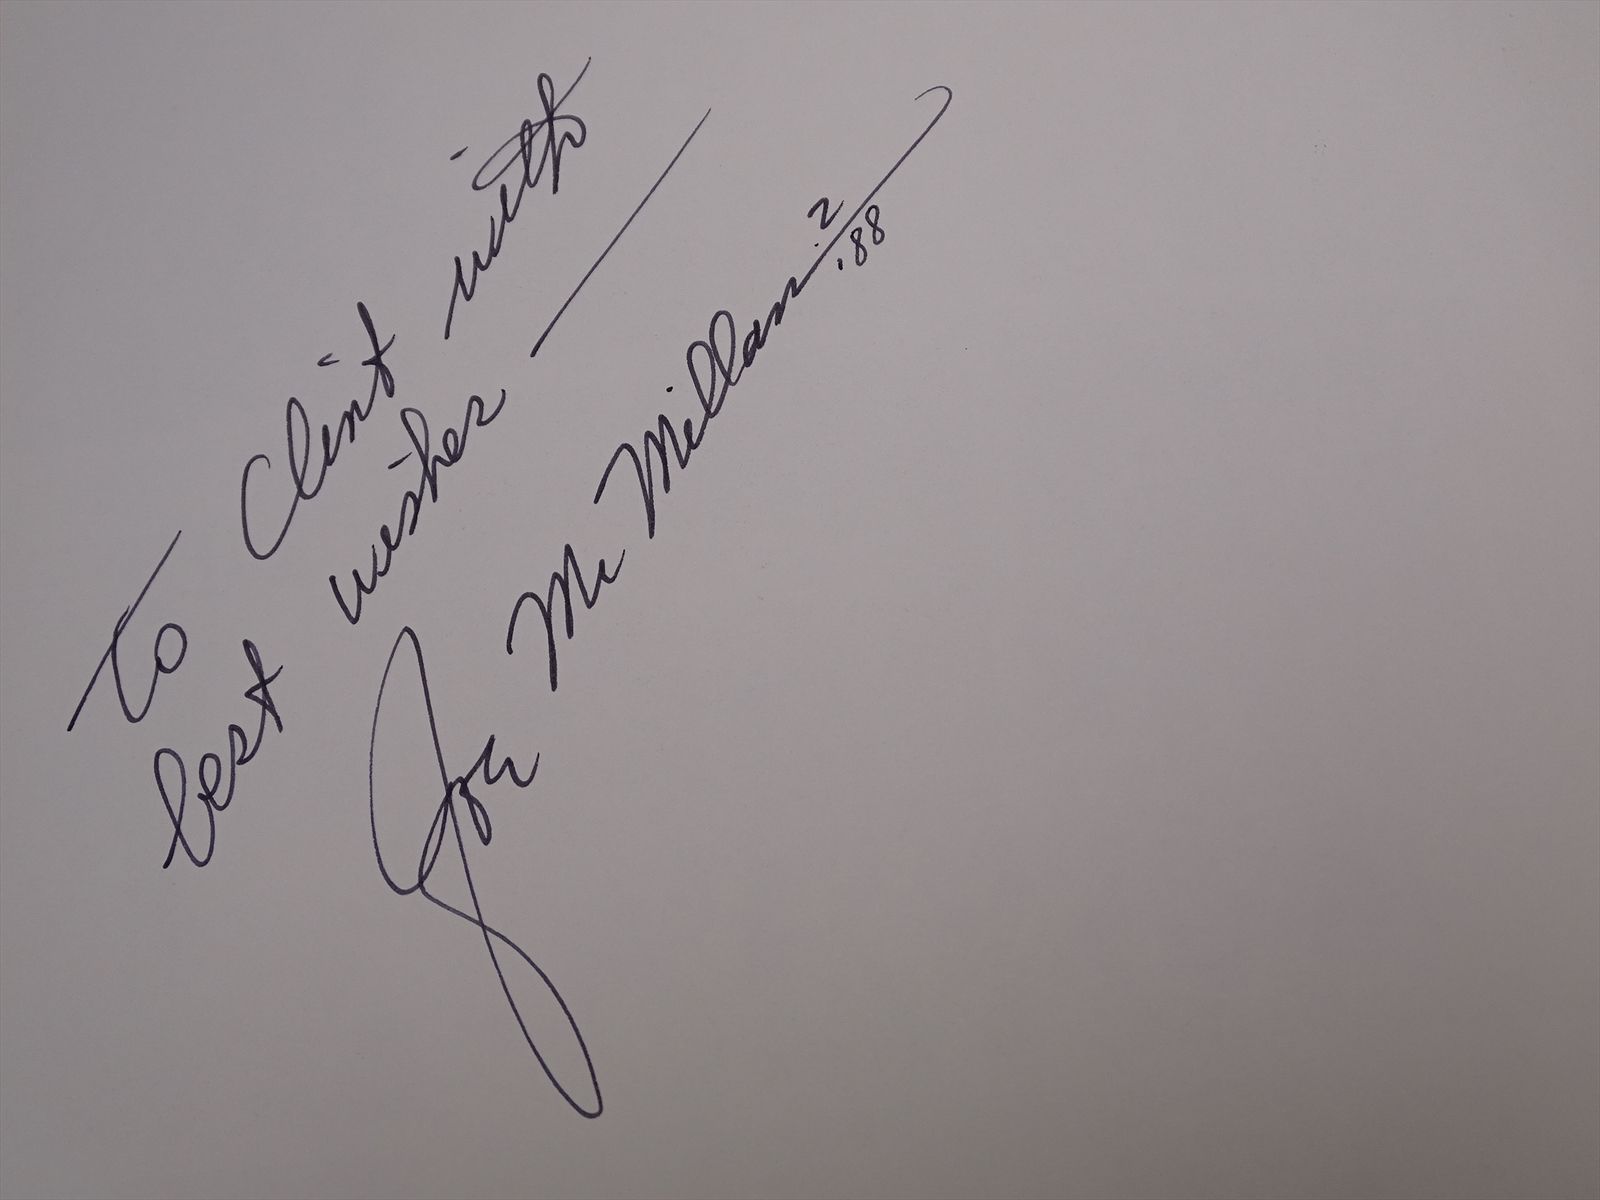 To Clint with
best wishes —
Joe McMillan 2
'88